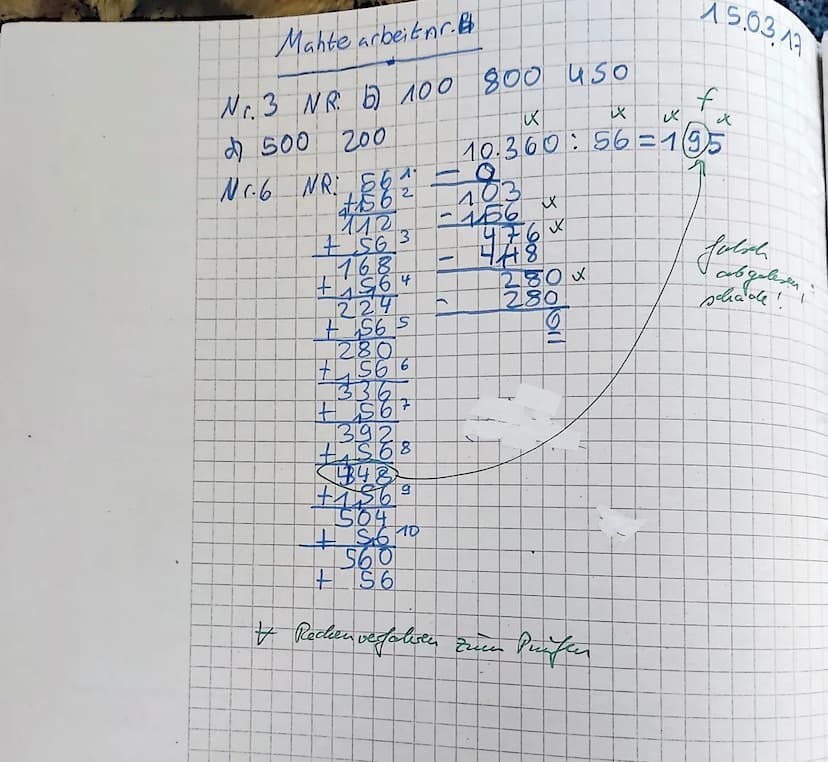 15.03.17
Mahte arbeit nr.
Nr.3 NR: b) 100 800 450
d) 500 200
f
10.360 : 56 = 195
Nr.6 NR: 56 1
+ 56 2
112
+ 56 3
168
+ 56 4
224
+ 56 5
280
+ 56 6
336
+ 56 7
392
+ 56 8
448
+ 56 9
504
+ 56 10
560
+ 56
- 0
103
- 56
476
- 448
280
- 280
0
falsch
abgelesen,
schade!
Rechenverfahren zum Prüfen